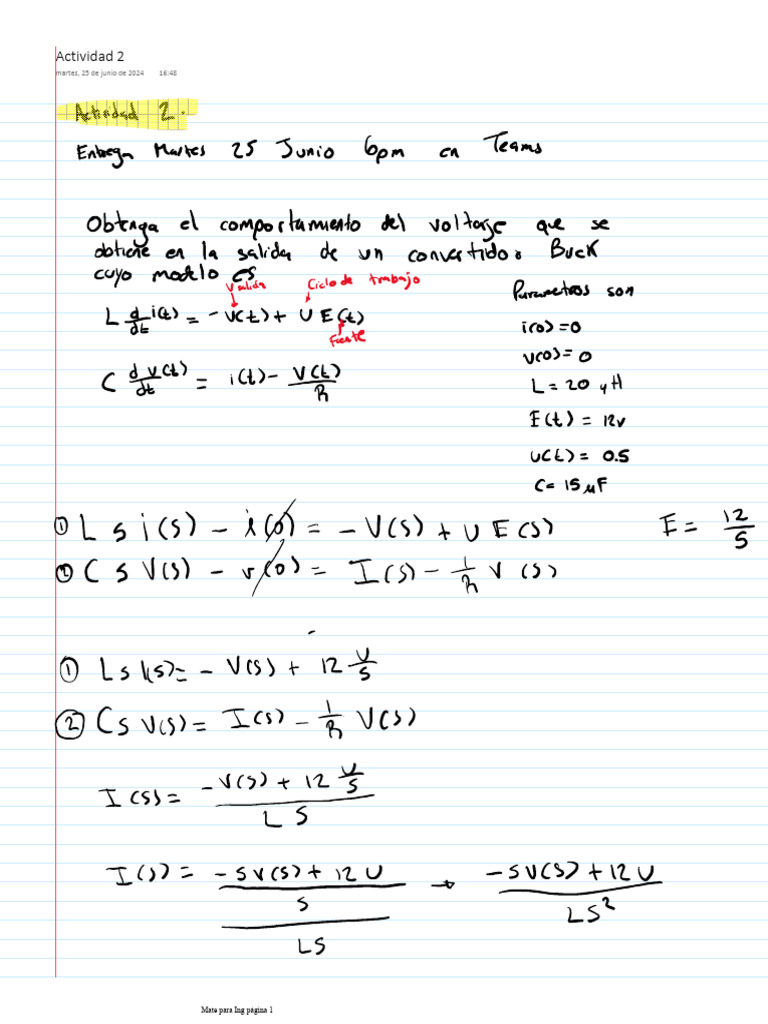 Actividad 2
martes, 25 de junio de 2024 16:48
Actividad 2.
Entrega Martes 25 Junio 6pm en Teams
Obtenga el comportamiento del voltaje que se
obtiene en la salida de un convertidor Buck
cuyo modelo es
V salida
Ciclo de trabajo
L d/dt i(t) = - v(t) + U E(t)
Fuente
C d v(t)/dt = i(t) - V(t)/R
Parametros son
i(0) = 0
v(0) = 0
L = 20 μH
E(t) = 12v
u(t) = 0.5
C = 15 μF
① L s i(s) - i(0) = - V(s) + U E(s)
E = 12/s
② C s V(s) - v(0) = I(s) - 1/R V(s)
① L s I(s) = - V(s) + 12 U/s
② C s V(s) = I(s) - 1/R V(s)
I(s) = (- V(s) + 12 U/s) / (L S)
I(s) = ((- s V(s) + 12 U) / s) / (L s) → (- s V(s) + 12 U) / (L s²)
Mate para Ing página 1